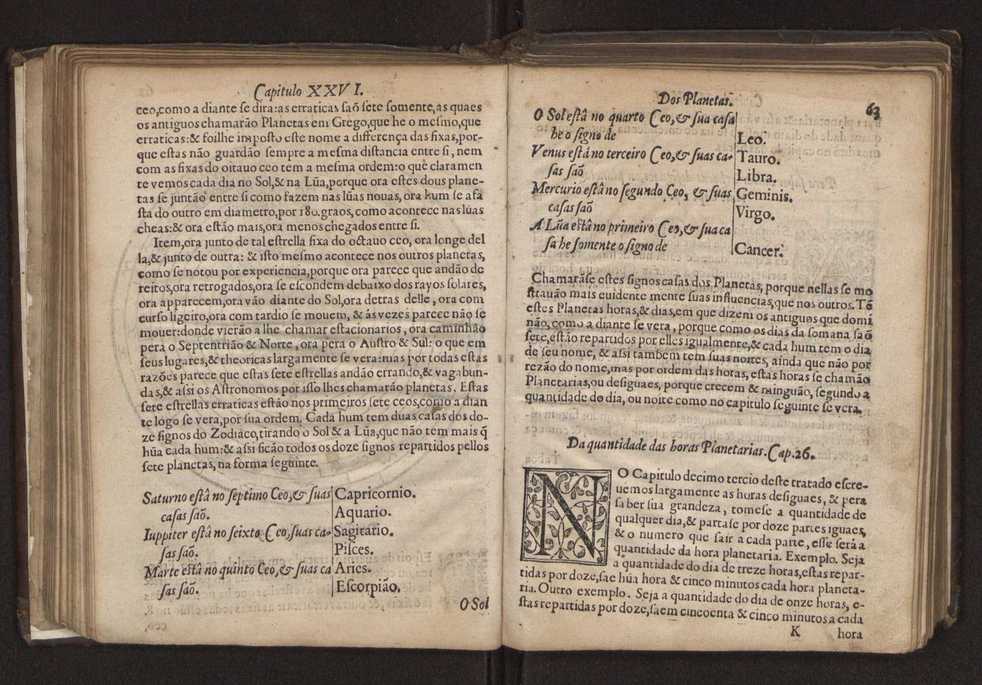 Capitulo XXVI.
ceo,como a diante ſe dira:as erraticas ſaõ ſete ſomente,as quaes
os antiguos chamarão Planetas em Grego,que he o meſmo,que
erraticas:& foilhe impoſto eſte nome a differença das fixas,por-
que eſtas não guardão ſempre a meſma diſtancia entre ſi, nem
com as fixas do oitauo ceo tem a meſma ordem:o quẽ claramen
te vemos cada dia no Sol,& na Lũa,porque ora eſtes dous plane-
tas ſe juntão entre ſi como fazem nas lũas nouas, ora hum ſe afa
ſta do outro em diametro,por 180.graos,como acontece nas lũas
cheas:& ora eſtão mais,ora menos chegados entre ſi.
Item,ora junto de tal eſtrella fixa do octauo ceo, ora longe del
la,& junto de outra: & iſto meſmo acontece nos outros planetas,
como ſe notou por experiencia,porque ora parece que andão de
reitos,ora retrogados,ora ſe eſcondem debaixo dos rayos ſolares,
ora apparecem,ora vão diante do Sol,ora detras delle , ora com
curſo ligeiro,ora com tardio ſe mouem, & às vezes parece não ſe
mouer:donde vierão a lhe chamar eſtacionarios , ora caminhão
pera o Septentrião & Norte , ora pera o Auſtro & Sul: o que em
ſeus lugares,& theoricas largamente ſe vera:mas por todas eſtas
razões parece que eſtas ſete eſtrellas andão errando,& vagabun-
das,& aſsi os Aſtronomos por iſſo lhes chamarão planetas. Eſtas
ſete eſtrellas erraticas eſtão nos primeiros ſete ceos,como a dian
te logo ſe vera,por ſua ordem. Cada hum tem duas caſas dos do-
ze ſignos do Zodiaco,tirando o Sol & a Lũa,que não tem mais q̃
hũa cada hum:& aſsi ficão todos os doze ſignos repartidos pellos
ſete planetas, na forma ſeguinte.
Saturno eſtâ no ſeptimo Ceo,& ſuas Capricornio.
caſas ſaõ. Aquario.
Iuppiter eſtâ no ſeixto Ceo,ſuas ca- Sagitario.
ſas ſaõ. Piſces.
Marte eſtâ no quinto Ceo,& ſuas ca Aries.
ſas ſaõ. Eſcorpião.
O Sol
Dos Planetas. 63
O Sol eſtâ no quarto Ceo,& ſua caſa
he o ſigno de Leo.
Venus eſtâ no terceiro Ceo,& ſuas ca- Tauro.
ſas ſaõ Libra.
Mercurio eſtâ no ſegundo Ceo, & ſuas Geminis.
caſas ſaõ Virgo.
A Lũa eſtâ no primeiro Ceo,& ſua ca
ſa he ſomente o ſigno de Cancer.
Chamarãſe eſtes ſignos caſas dos Planetas, porque nellas ſe mo
ſtrauão mais euidente mente ſuas influencias,que nos outros.Tẽ
eſtes Planetas horas,& dias,em que dizem os antiguos que domi
não,como a diante ſe vera , porque como os dias da ſomana ſaõ
ſete,eſtão repartidos por elles igualmente,& cada hum tem o dia
de ſeu nome, & aſsi tambem tem ſuas noites, ainda que não por
rezão do nome,mas por ordem das horas, eſtas horas ſe chamão
Planetarias,ou deſiguaes, porque crecem & minguão, ſegundo a
quantidade do dia, ou noite como no capitulo ſeguinte ſe vera.
Da quantidade das horas Planetarias. Cap.26.
NO Capitulo decimo tercio deſte tratado eſcre-
uemos largamente as horas deſiguaes, & pera
ſaber ſua grandeza, tomeſe a quantidade de
qualquer dia,& partaſe por doze partes iguaes,
& o numero que ſair a cada parte, eſſe ſerá a
quantidade da hora planetaria. Exemplo. Seja
a quantidade do dia de treze horas,eſtas repar-
tidas por doze,ſae hũa hora & cinco minutos cada hora planeta-
ria. Outro exemplo. Seja a quantidade do dia de onze horas, e-
ſtas repartidas por doze,ſaem cincoenta & cinco minutos a cada
K hora